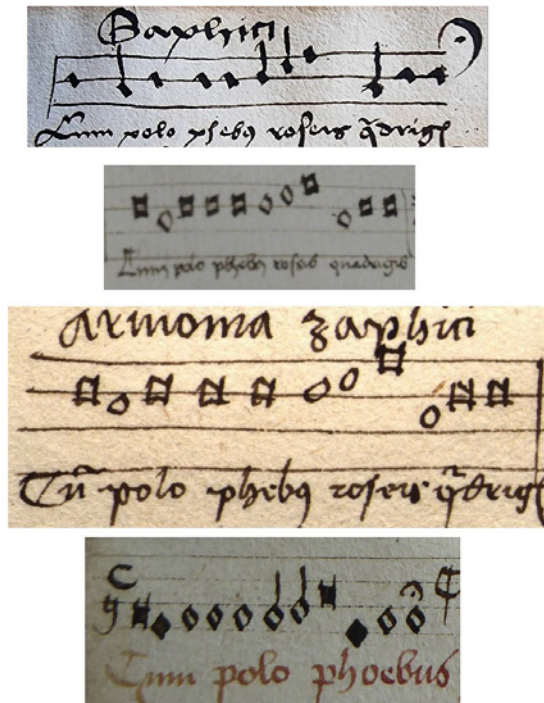 Saphici
Cum polo phebꝰ roseis q̃drigꝭ
Cum polo phebꝰ roseis quadrigis
Armonia zaphici
Cũ polo phebꝰ roseis q̃drigꝭ
Cum polo phoebus